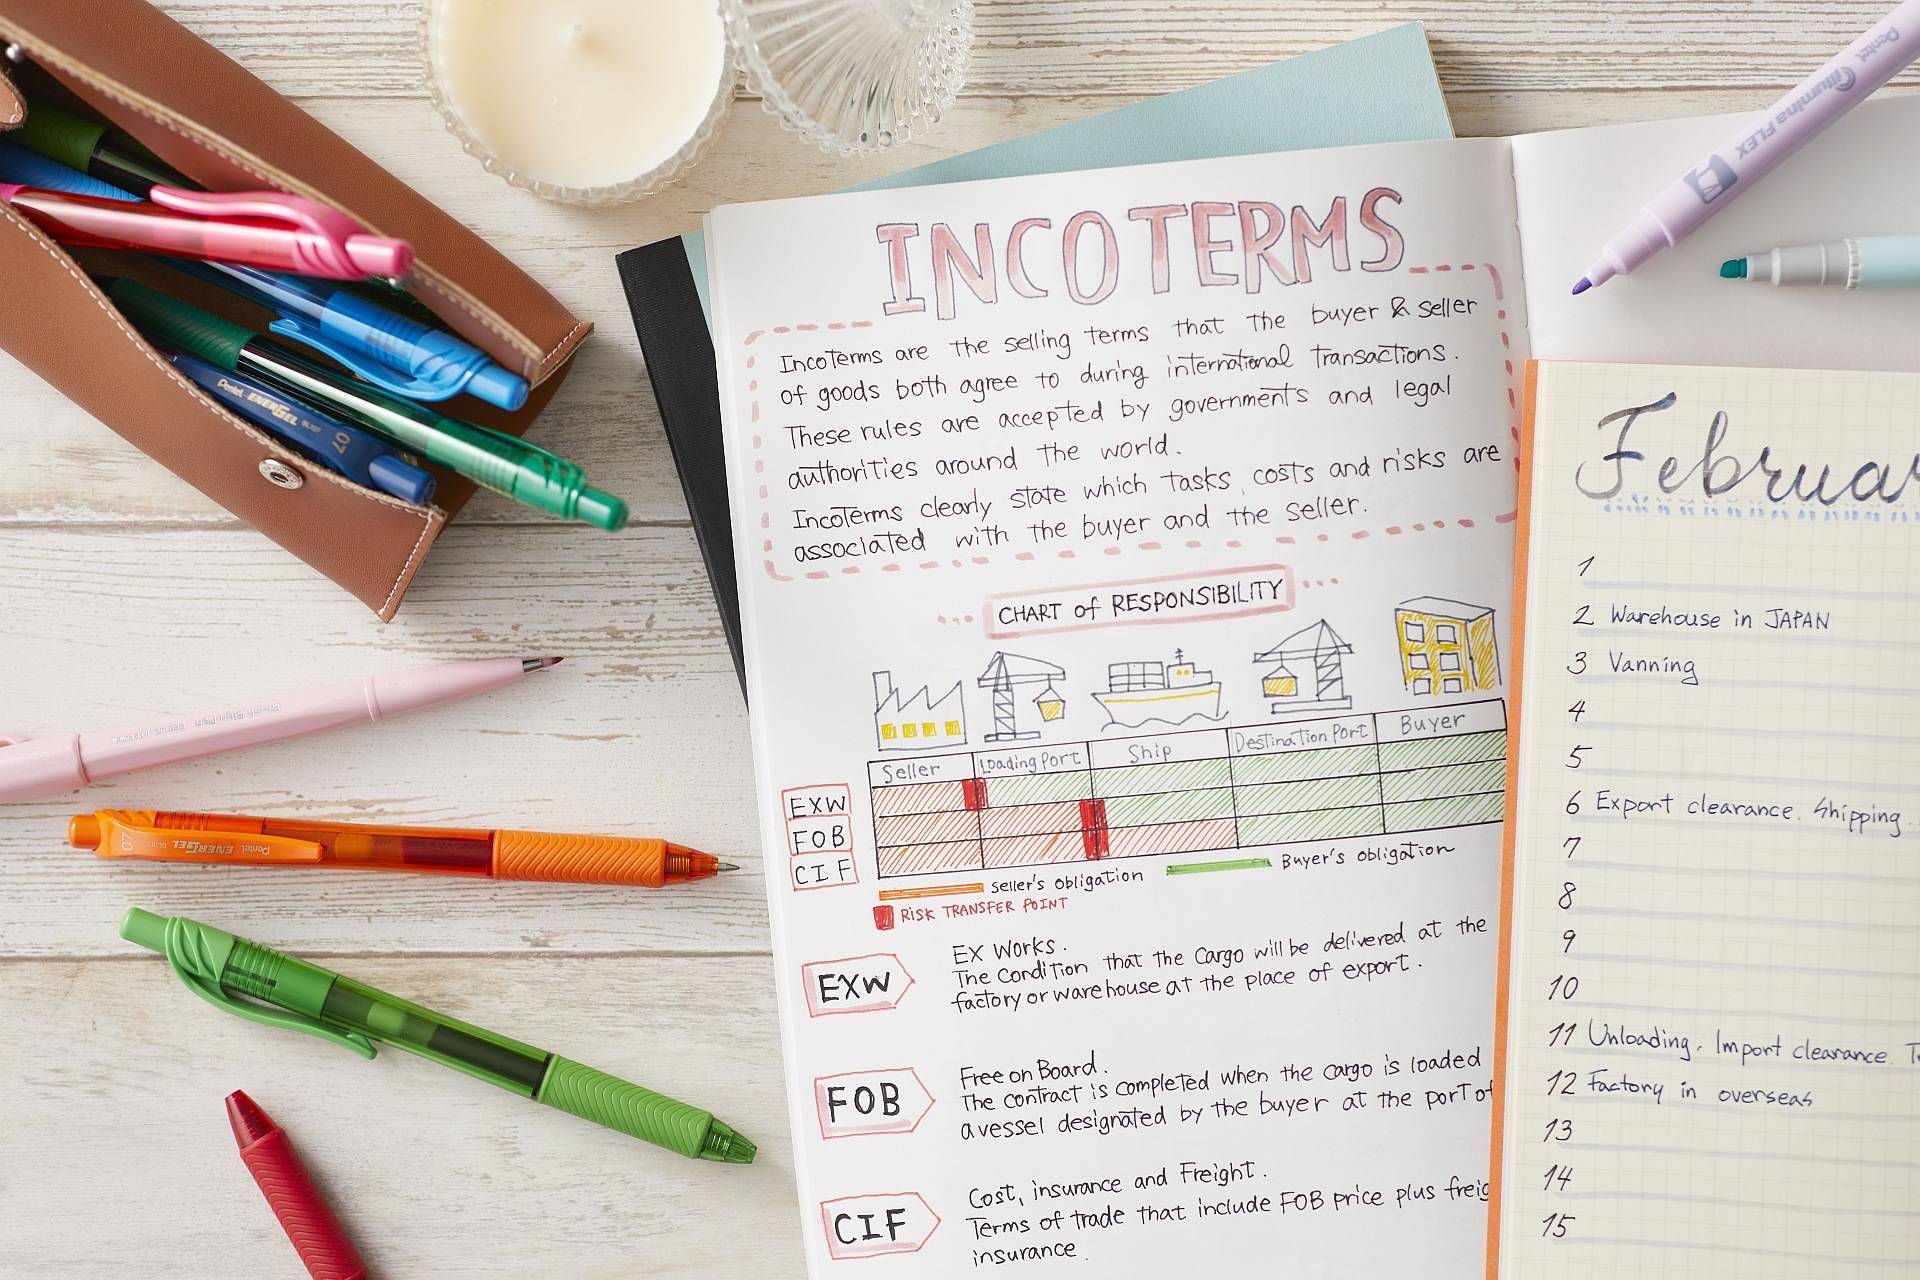 INCOTERMS
Incoterms are the selling terms that the buyer & seller
of goods both agree to during international transactions.
These rules are accepted by governments and legal
authorities around the world.
Incoterms clearly state which tasks, costs and risks are
associated with the buyer and the seller.
CHART of RESPONSIBILITY
Seller Loading Port Ship Destination Port Buyer
EXW
FOB
CIF
Seller's obligation Buyer's obligation
RISK TRANSFER POINT
EXW
EX Works.
The Condition that the Cargo will be delivered at the
factory or warehouse at the place of export.
FOB
Free on Board.
The contract is completed when the cargo is loaded
a vessel designated by the buyer at the port of
CIF
Cost, insurance and Freight.
Terms of trade that include FOB price plus freig
insurance.
Februar
1
2 Warehouse in JAPAN
3 Vanning
4
5
6 Export clearance. Shipping.
7
8
9
10
11 Unloading. Import clearance. T
12 Factory in overseas
13
14
15
Pentel illumina FLEX
Pentel ENERGEL BL107 07
Pentel ENERGEL BL107 07
Brush Sign Pen